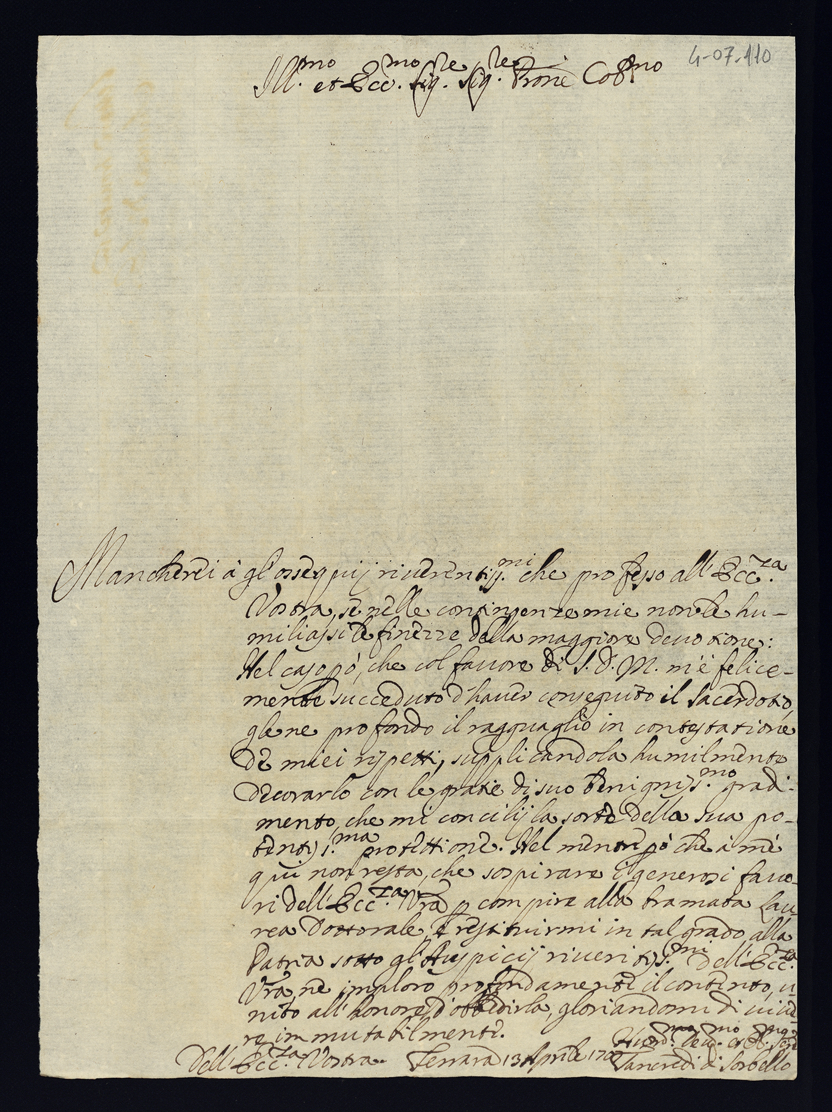 4-07.110
Ill.mo et Ecc.mo Sig.re Sig.re Prone Col.mo
Mancherei à gl'ossequij riverentiss.mi che professo all'Ecc.za
Vostra, se nelle contingenze mie non le hu-
miliassi le finezze della maggiore devotione:
Nel caso pò, che col favore di S. D. M. m'è felice-
mente succeduto d'haver conseguito il Sacerdotio,
gliene profondo il ragguaglio in contestatione
de miei rispetti, supplicandola humilmente
decorarlo con le gratie di suo benigniss.mo gradi-
mento, che mi concilij la sorte della sua po-
tentiss.ma protettione. Nel mentre pò che à me
qui non resta, che sospirare i generosi favo-
ri dell'Ecc.za Vrã p compire alla bramata Lau-
rea Dottorale, e restituirmi in tal grado alla
Patria sotto gl'Auspicij riveritiss.mi dell'Ecc.za
Vrã, ne imploro profondamente il contento, u-
nito all'honore d'obbedirla, gloriandomi di vive-
re immutabilmente.
Dell'Ecc.za Vostra Ferrara 13 Aprile
Tancredi di Sorbello